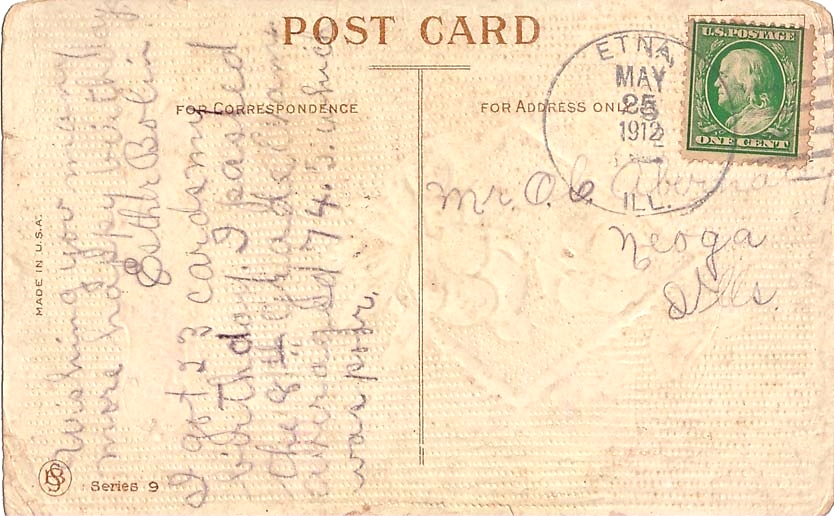 POST CARD
FOR CORRESPONDENCE
FOR ADDRESS ONLY
U.S. POSTAGE
ONE CENT
ETNA,
MAY
25
1912
ILL.
Mr. O. C.
Neoga
Ills.
Wishing you many
more happy birthdays
Esther Bolin.
I got 23 cards my
birthday. I passed
the 8th grade exam
averaged 74.3. which
was poor.
MADE IN U.S.A.
Series 9